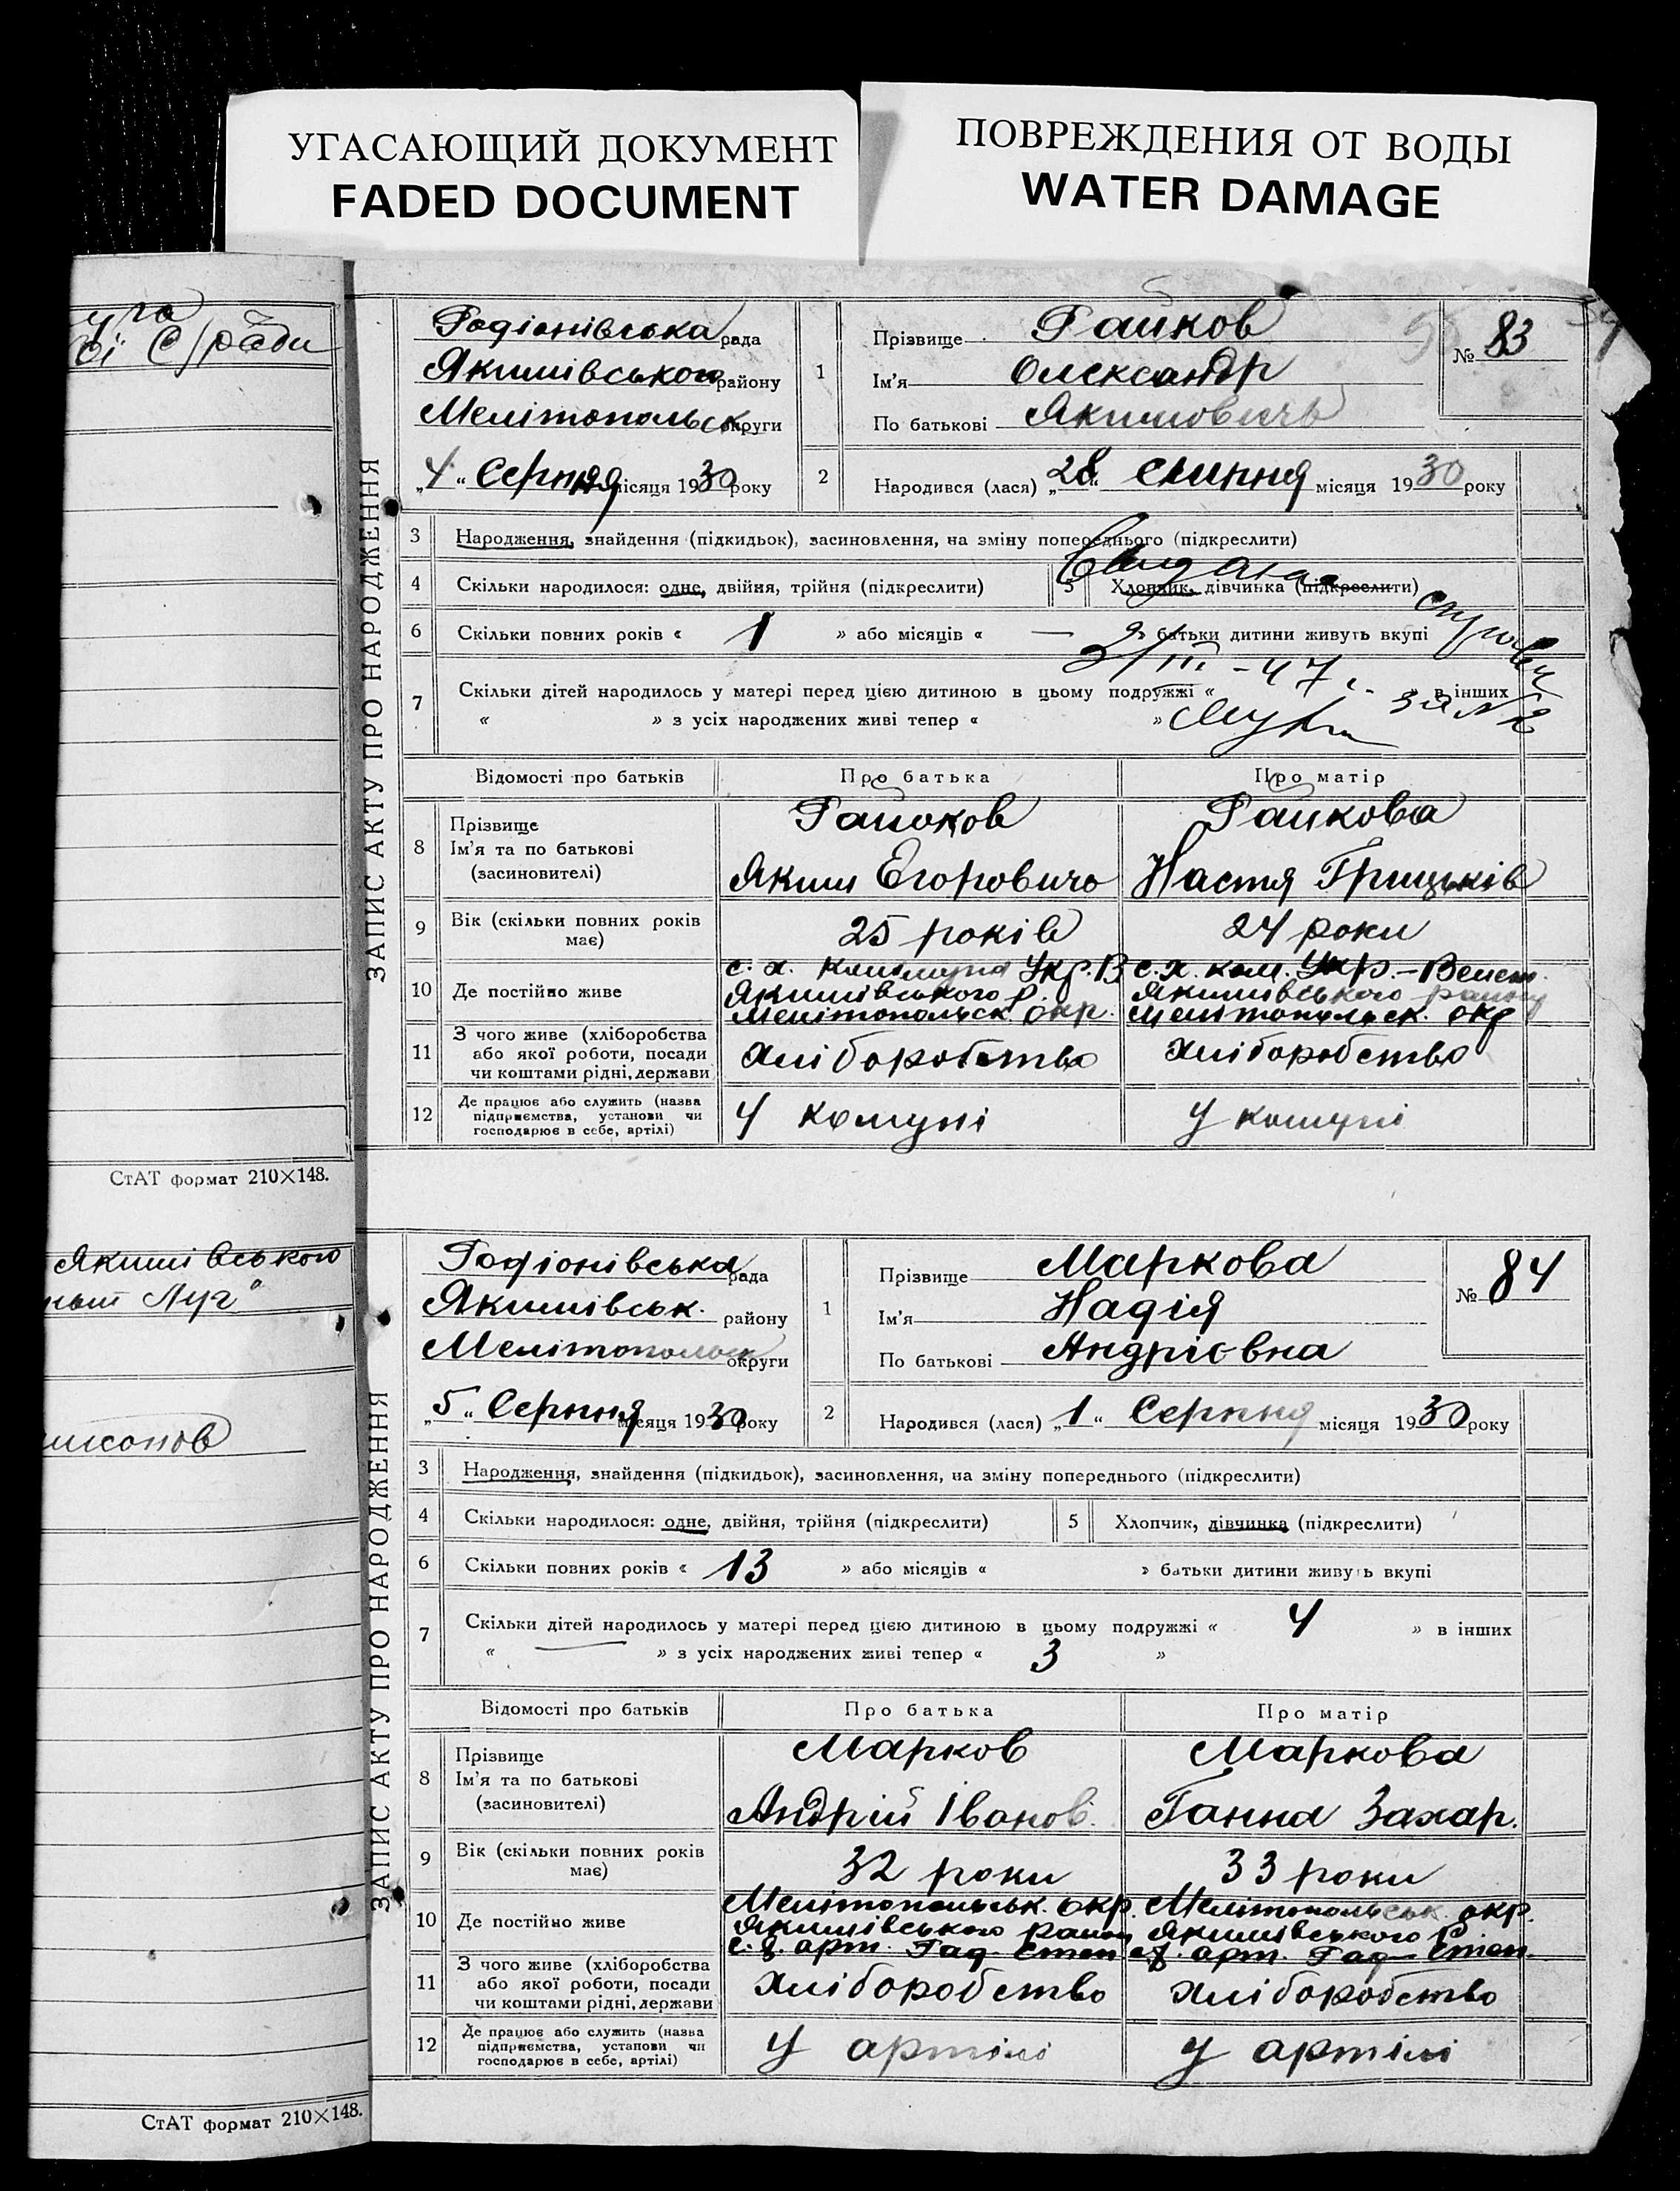 УГАСАЮЩИЙ ДОКУМЕНТ
FADED DOCUMENT
ПОВРЕЖДЕНИЯ ОТ ВОДЫ
WATER DAMAGE
С/ради
СтАТ формат 210×148.
Якимівського
Луг"
СтАТ формат 210×148.
ЗАПИС АКТУ ПРО НАРОДЖЕННЯ
Родіонівська рада
Якимівського району
Мелітопольськ округи
„4“ Серпня місяця 1930 року
1
Прізвище Райков
Ім’я Олександр
По батькові Якимовичь
№ 83
2
Народився (лася) „28“ Липня місяця 1930 року
3 Народження, знайдення (підкидьок), засиновлення, на зміну попереднього (підкреслити)
4 Скільки народилося: одне, двійня, трійня (підкреслити)
5 Хлопчик, дівчинка (підкреслити)
6 Скільки повних років « 1 » або місяців « — » батьки дитини живуть вкупі
III – 47
7 Скільки дітей народилось у матері перед цією дитиною в цьому подружжі « » в інших
« » з усіх народжених живі тепер « »
за №
Відомості про батьків
Про батька
Про матір
8 Прізвище
Ім’я та по батькові
(засиновителі)
Райков
Яким Егоровичь
Райкова
Настя Грицьків
9 Вік (скільки повних років має)
25 років
24 роки
10 Де постійно живе
с. х. Коммуна Укр. В
Якимівського р.
Мелітопольск. окр.
с. х. ком. Укр. –
Якимівського району
Мелітопольск. окр
11 З чого живе (хліборобства
або якої роботи, посади
чи коштами рідні, держави
Хліборобство
Хліборобство
12 Де працює або служить (назва
підприємства, установи чи
господарює в себе, артілі)
У комуні
У комуні
ЗАПИС АКТУ ПРО НАРОДЖЕННЯ
Родіонівська рада
Якимівськ. району
Мелітопольськ округи
„5“ Серпня місяця 1930 року
1
Прізвище Маркова
Ім’я Надія
По батькові Андрієвна
№ 84
2
Народився (лася) „1“ Серпня місяця 1930 року
3 Народження, знайдення (підкидьок), засиновлення, на зміну попереднього (підкреслити)
4 Скільки народилося: одне, двійня, трійня (підкреслити)
5 Хлопчик, дівчинка (підкреслити)
6 Скільки повних років « 13 » або місяців « » батьки дитини живуть вкупі
7 Скільки дітей народилось у матері перед цією дитиною в цьому подружжі « 4 » в інших
« — » з усіх народжених живі тепер « 3 »
Відомості про батьків
Про батька
Про матір
8 Прізвище
Ім’я та по батькові
(засиновителі)
Марков
Андрій Іванов.
Маркова
Ганна Захар.
9 Вік (скільки повних років має)
32 роки
33 роки
10 Де постійно живе
Мелітопольськ. окр.
Якимівського район
арт. Рад. Степ
Мелітопольськ. окр.
Якимівського р.
арт. Рад– Степ.
11 З чого живе (хліборобства
або якої роботи, посади
чи коштами рідні, держави
Хліборобство
Хліборобство
12 Де працює або служить (назва
підприємства, установи чи
господарює в себе, артілі)
У артілі
У артілі